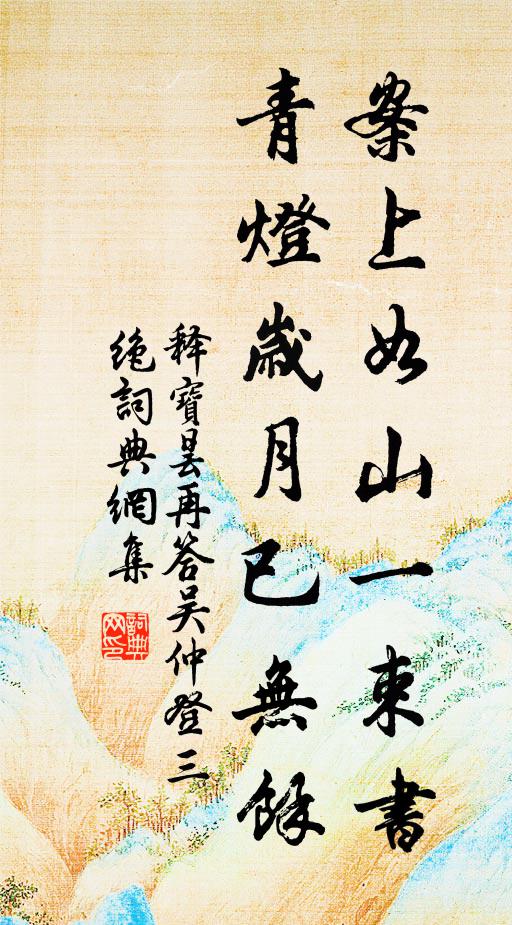 案上如山一束書
青燈歲月已無餘
释寶曇再答吴仲登三
绝詞典網集
詞典
网印